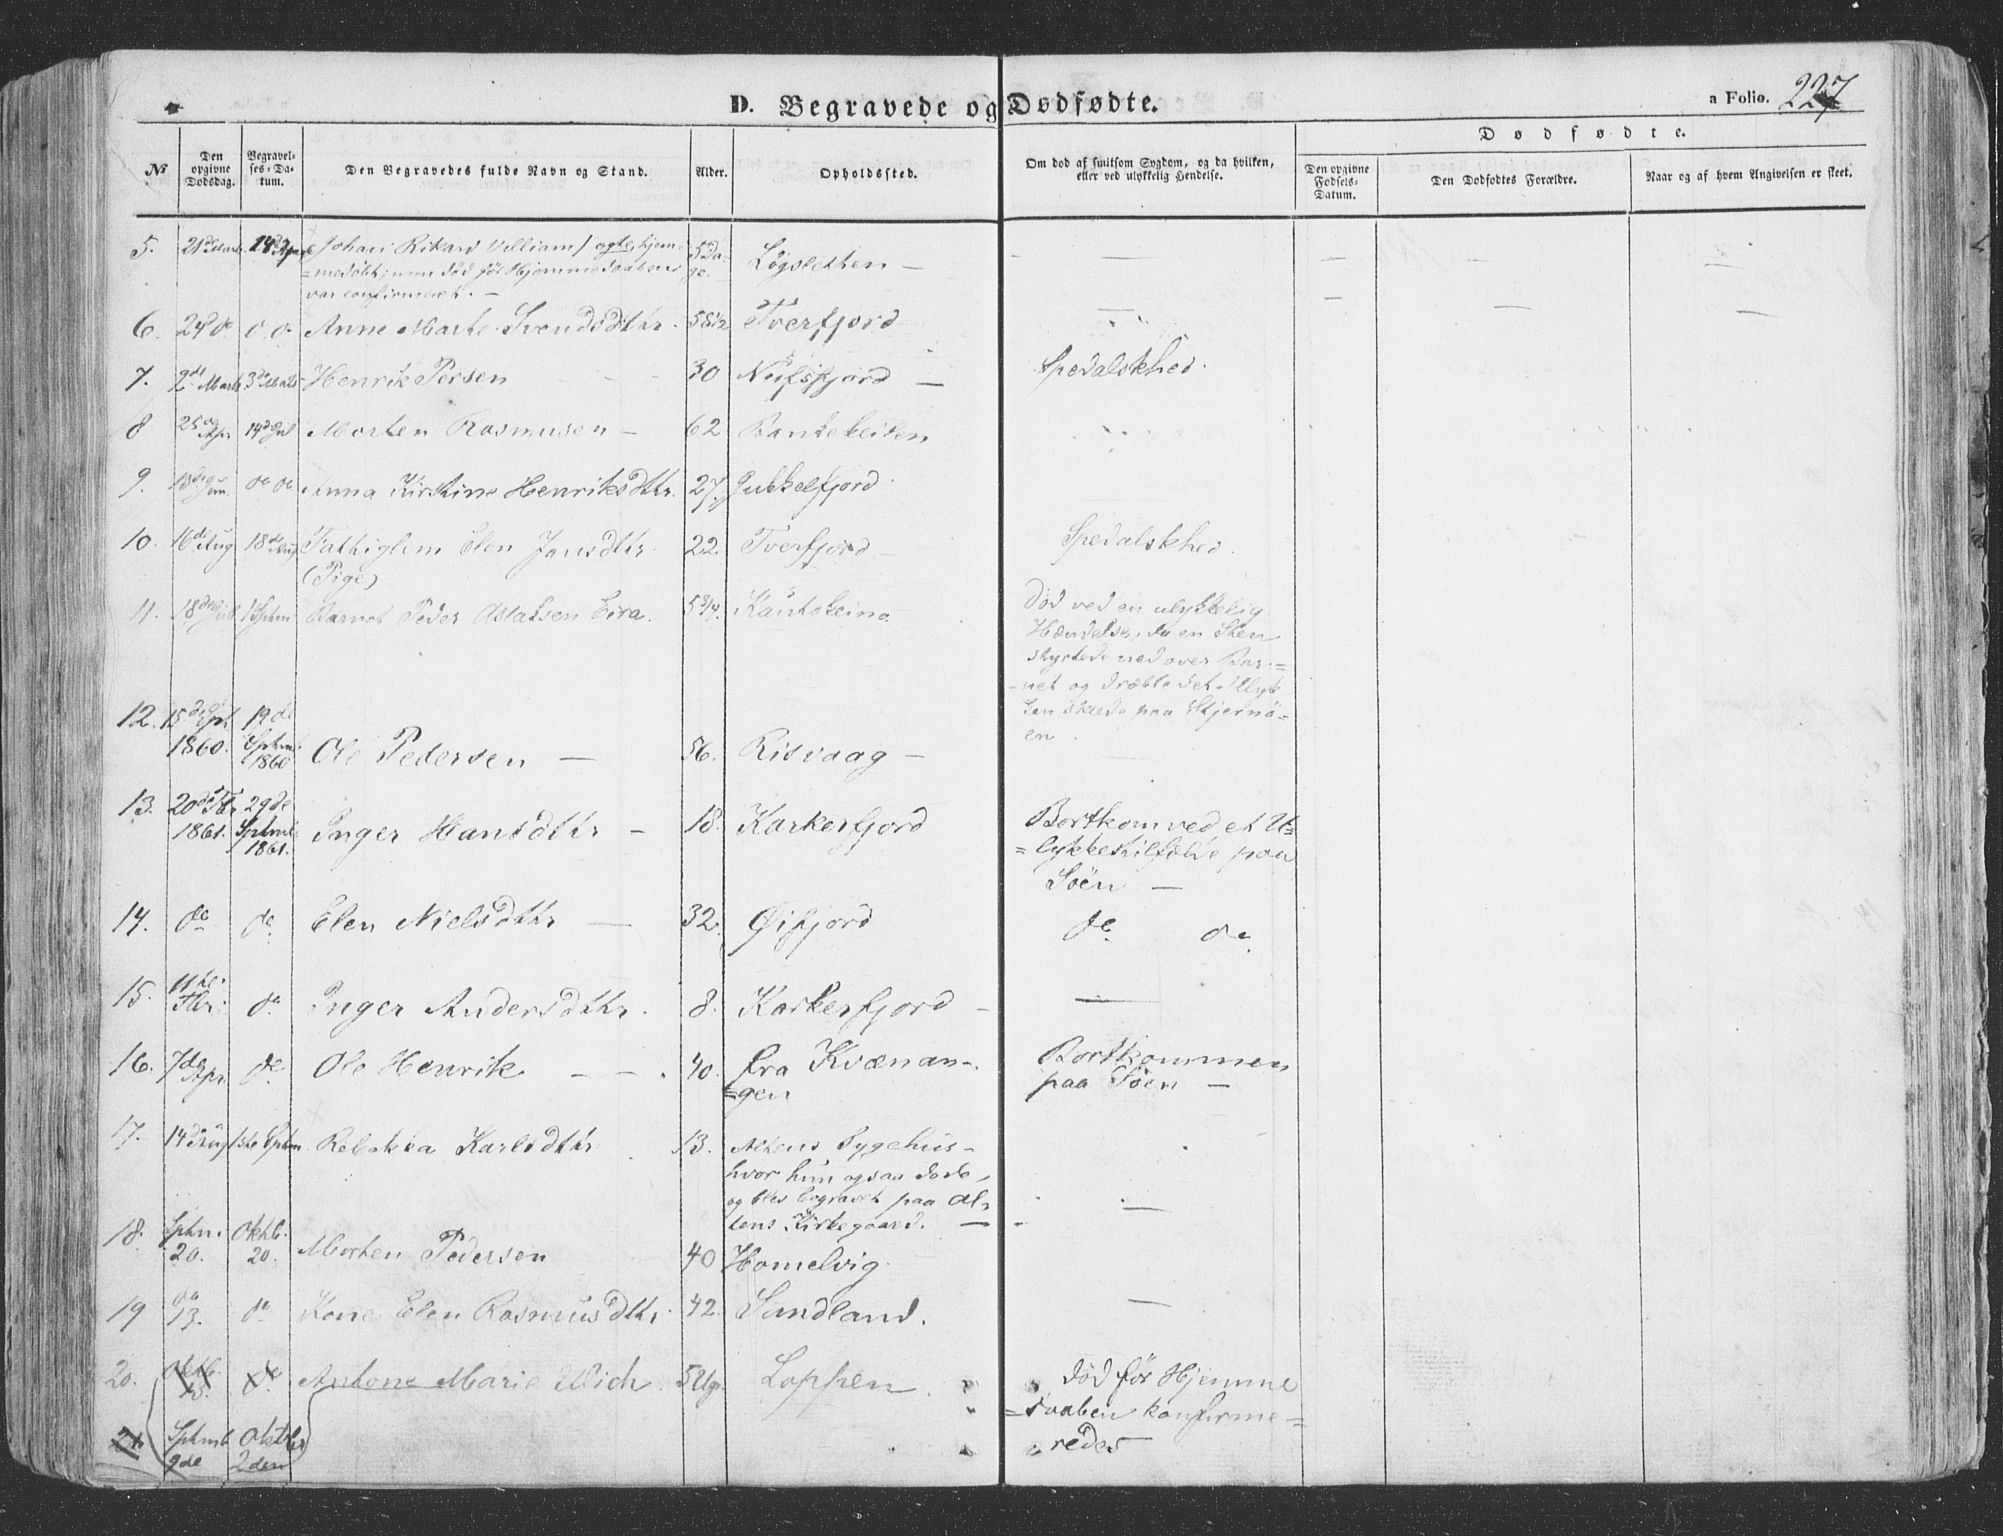 D. Begravede og Dødfødte.
a Folio. 227
Dødfødte.
No
Den opgivne Dødsdag.
Begravelses-Datum.
Den Begravedes fulde Navn og Stand.
Alder.
Opholdssted.
Om død af smitsom Sygdom, og da hvilken, eller ved ulykkelig Hendelse.
Den opgivne Fødsels-Datum.
Den Dødfødtes Forældre.
Naar og af hvem Angivelsen er skeet.
5. 21d Marts 14d Apr Johan Rikard Villiam / ægte, hjem= 5 Da- Løgsletten —
=medøbt; men død før Hjemmedaaben ge.
var confirmeret. —
6. 24d do do Anne Marte Svendsdttr. 58 1/2 Tverfjord —
7. 2de Marts 3de Marts Henrik Persen 30 Nufsfjord — Spedalskhed.
8 25de Apr 14de Jul Morten Rasmusen — 62 Bankekeiten
9. 13de Jun. do do Anna Kirstine Henriksdttr. 27. Jukkelfjord
10. 16de Aug 18de Aug Fattiglem Elen Jansdttr. 22. Tverfjord — Spedalskhed.
(Pige)
11. 18de Jul 1 Septm Barnet Peder Aslaksen Eira. 5 3/4. Kautokeino. Død ved en ulykkelig
Hændelse, da en Sten
styrtede ned over Bar-=
-net og dræbte det. Ulyk
ken skede paa Stjernø=
en.
12. 15de Spt. 1860. 19de Septm. 1860 Ole Pedersen — 56. Risvaag —
13. 20de Fbr 1861. 29de Septm. 1861. Inger Hansdttr — 18. Karkerfjord Bortkom ved et U=
=lykkestilfælde paa
Søen —
14. do do Elen Nielsdttr — 32. Øifjord do do
15. 11te Fbr: do Inger Andersdttr. 8. Karkerfjord — —
16. 7de Apr. do Ole Henrik — — . 40. fra Kvænan-
=gen Bortkommen
paa Søen —
17. 14de Aug 1ste Sptm. Rebekka Karlsdttr. 13. Altens Sygehus-
hvor hun ogsaa døde,
og blev begravet paa Al=
tens Kirkegaard. —
18. Sptm. 20. Oktb. 20. Morten Pedersen 40 Homelvig.
19 do 13. do Kone Elen Rasmusdttr. 42. Sandland. —
20. Oktb. 13. do Antone Marie Wich. 5 Ugr. Loppen. død før Hjemme
=daaben konfirme=
redes
21. Sptmb 9de Oktbr 2den